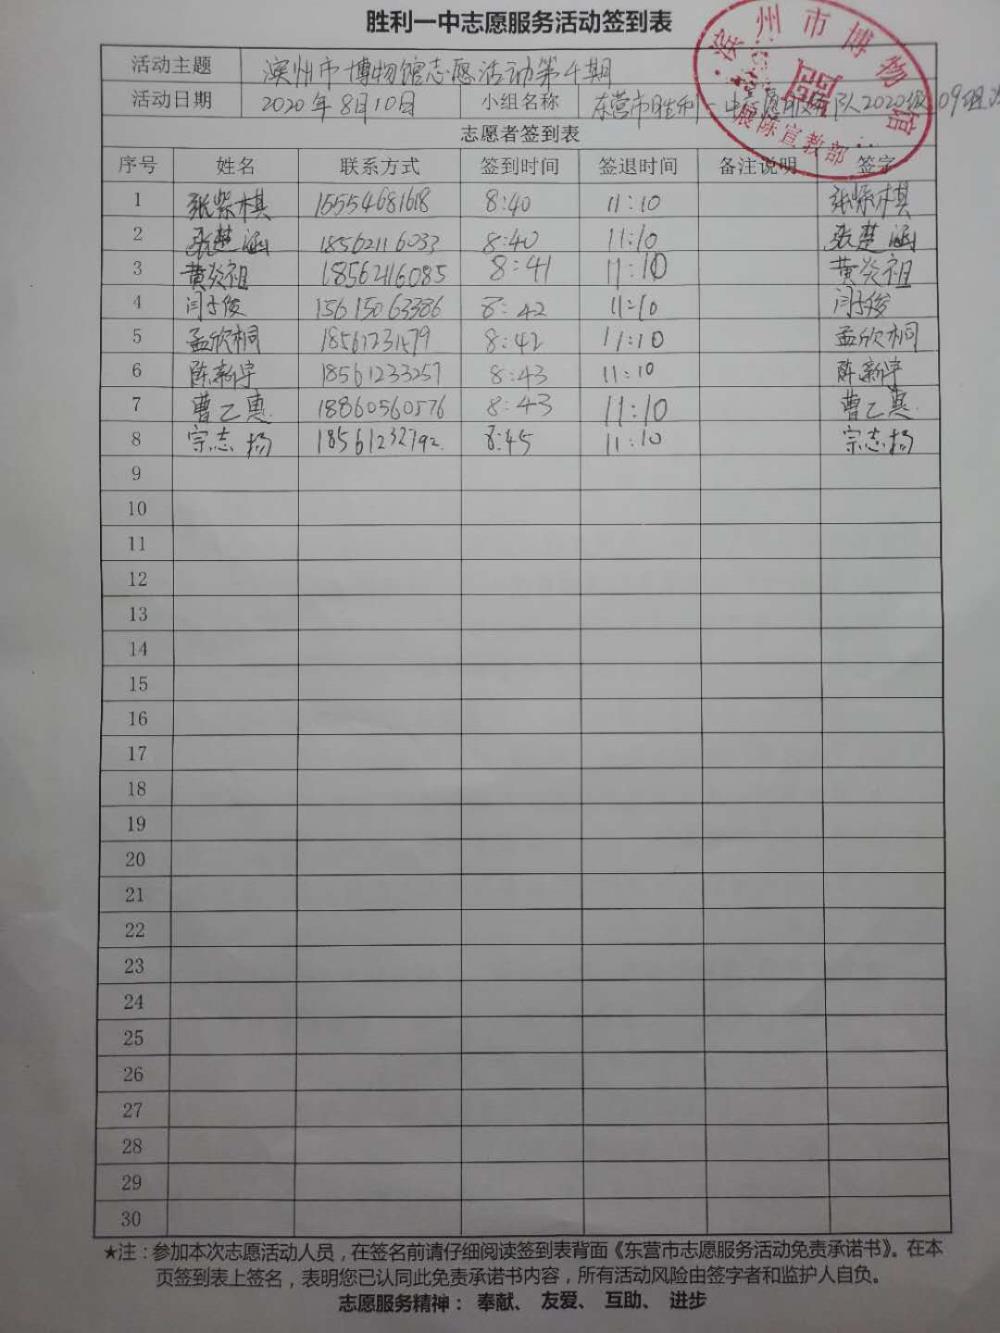 胜利一中志愿服务活动签到表
滨州市博物馆
展陈宣教部
活动主题 滨州市博物馆志愿活动第4期
活动日期 2020年8月10日 小组名称 东营市胜利一中志愿服务队2020级09组
志愿者签到表
序号 姓名 联系方式 签到时间 签退时间 备注说明 签字
1 张紫棋 15554681618 8:40 11:10 张紫棋
2 张楚涵 18562116033 8:40 11:10 张楚涵
3 黄炎祖 18562116085 8:41 11:10 黄炎祖
4 闫子俊 15615063386 8:42 11:10 闫子俊
5 孟欣桐 18561231579 8:42 11:10 孟欣桐
6 陈新宇 18561233257 8:43 11:10 陈新宇
7 曹乙惠 18860560576 8:43 11:10 曹乙惠
8 宗志扬 18561232792 8:45 11:10 宗志扬
9
10
11
12
13
14
15
16
17
18
19
20
21
22
23
24
25
26
27
28
29
30
★注：参加本次志愿活动人员，在签名前请仔细阅读签到表背面《东营市志愿服务活动免责承诺书》。在本
页签到表上签名，表明您已认同此免责承诺书内容，所有活动风险由签字者和监护人自负。
志愿服务精神： 奉献、 友爱、 互助、 进步